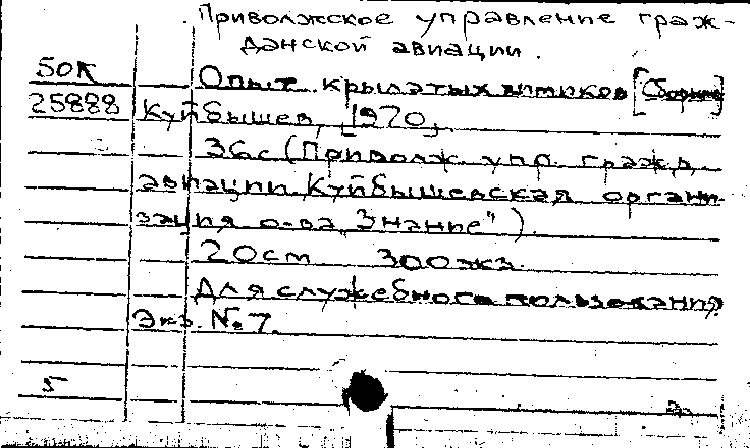 Приволжское управление граж-
данской авиации.
50К Опыт крылатых [Сборник]
25888 Куйбышев, [1970],
36с (Приволж. упр. гражд.
авиации. Куйбышевская органи-
зация о-ва „Знание").
20см 300экз.
Для служебного пользования
Экз. №7.
5